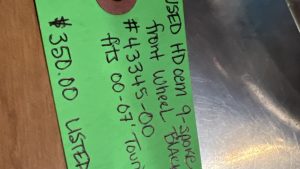 USED HD oem 9-spoke
front Wheel BLACK
#43345-00
fits 00-07' Tour
$350.00 LISTED